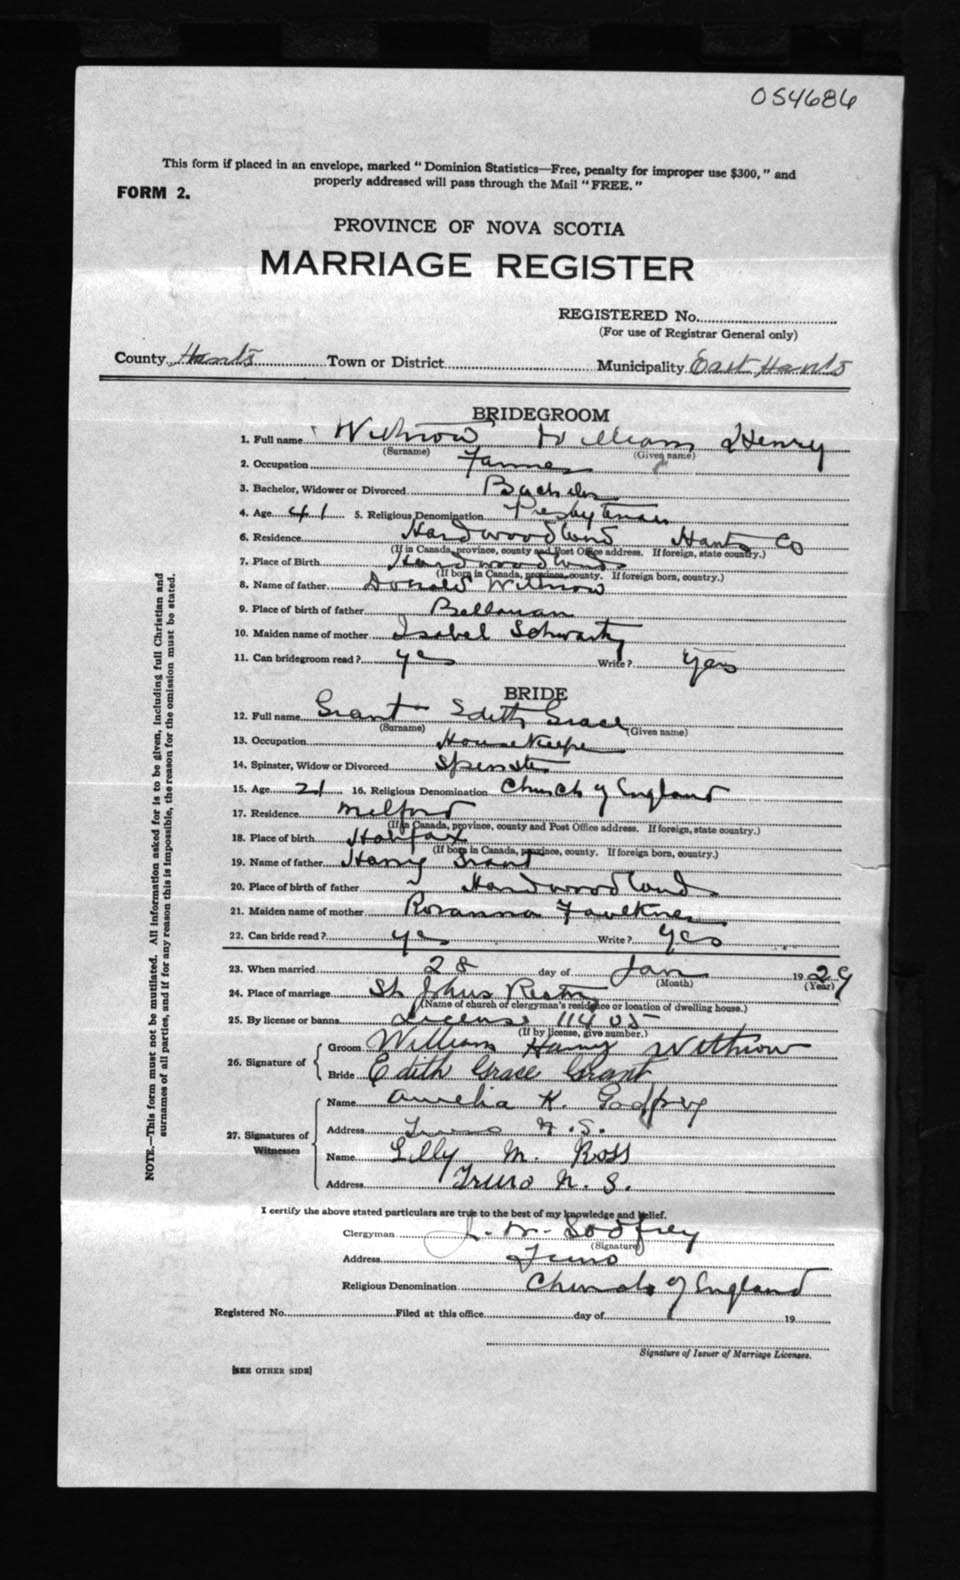 054686
This form if placed in an envelope, marked "Dominion Statistics—Free, penalty for improper use $300," and
properly addressed will pass through the Mail "FREE."
FORM 2.
PROVINCE OF NOVA SCOTIA
MARRIAGE REGISTER
REGISTERED No.
(For use of Registrar General only)
County Hants Town or District Municipality East Hants
BRIDEGROOM
1. Full name Withrow William Henry
(Surname) (Given name)
2. Occupation Farmer
3. Bachelor, Widower or Divorced Bachelor
4. Age 41 5. Religious Denomination Presbyterian
6. Residence Hardwoodland Hants Co
(If in Canada, province, county and Post Office address. If foreign, state country.)
7. Place of Birth Hardwoodlands
(If born in Canada, province, county. If foreign born, country.)
8. Name of father Donald Withrow
9. Place of birth of father
10. Maiden name of mother Isabel Schwartz
11. Can bridegroom read? yes Write? yes
BRIDE
12. Full name Grant Edith Grace
(Surname) (Given name)
13. Occupation Housekeeper
14. Spinster, Widow or Divorced Spinster
15. Age 21 16. Religious Denomination Church of England
17. Residence Milford
(If in Canada, province, county and Post Office address. If foreign, state country.)
18. Place of birth Halifax
(If born in Canada, province, county. If foreign born, country.)
19. Name of father Harry Grant
20. Place of birth of father Hardwoodlands
21. Maiden name of mother Rosanna Faulkner
22. Can bride read? yes Write? yes
23. When married 28 day of Jan 1929
(Month) (Year)
24. Place of marriage St Johns
(Name of church of clergyman's residence or location of dwelling house.)
25. By license or banns License 11405
(If by license, give number.)
26. Signature of
Groom William Harry Withrow
Bride Edith Grace Grant
27. Signatures of Witnesses
Name Amelia K. Godfrey
Address Truro N. S.
Name Lilly M. Ross
Address Truro N. S.
I certify the above stated particulars are true to the best of my knowledge and belief.
Clergyman Godfrey
(Signature)
Address Truro
Religious Denomination Church of England
Registered No. Filed at this office day of 19
Signature of Issuer of Marriage Licenses.
[SEE OTHER SIDE]
NOTE.—This form must not be mutilated. All information asked for is to be given, including full Christian and
surnames of all parties, and if for any reason this is impossible, the reason for the omission must be stated.